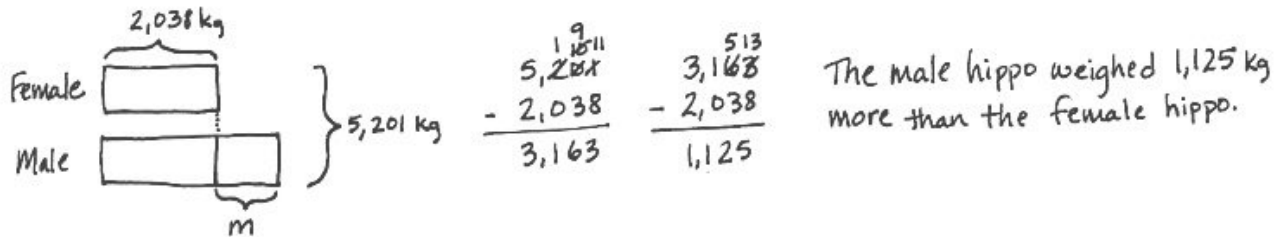 2,038 kg
Female
Male
5,201 kg
m
9
1 10 11
5,201
- 2,038
3,163
5 13
3,163
- 2,038
1,125
The male hippo weighed 1,125 kg
more than the female hippo.